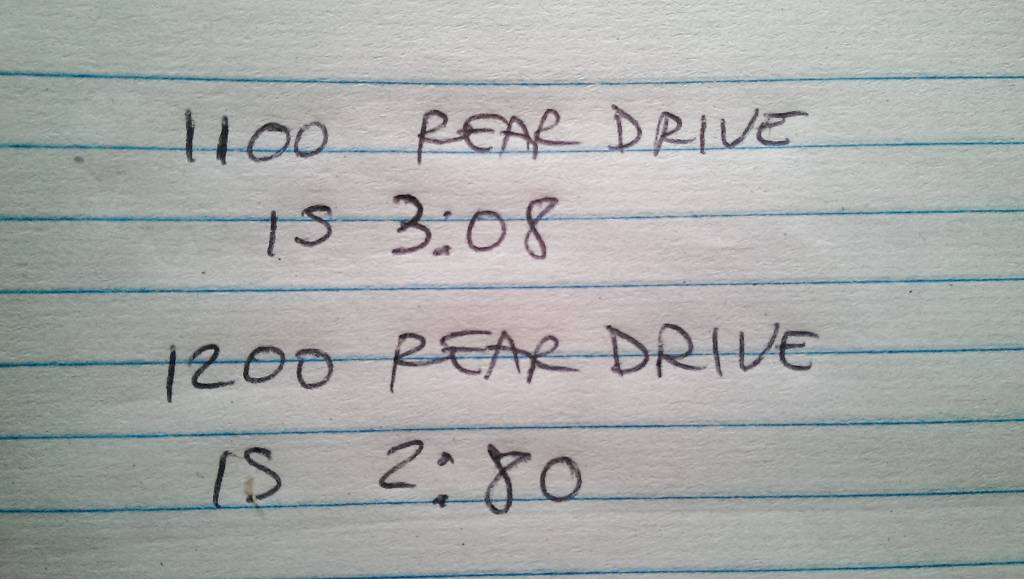 1100 REAR DRIVE
IS 3:08
1200 REAR DRIVE
IS 2:80